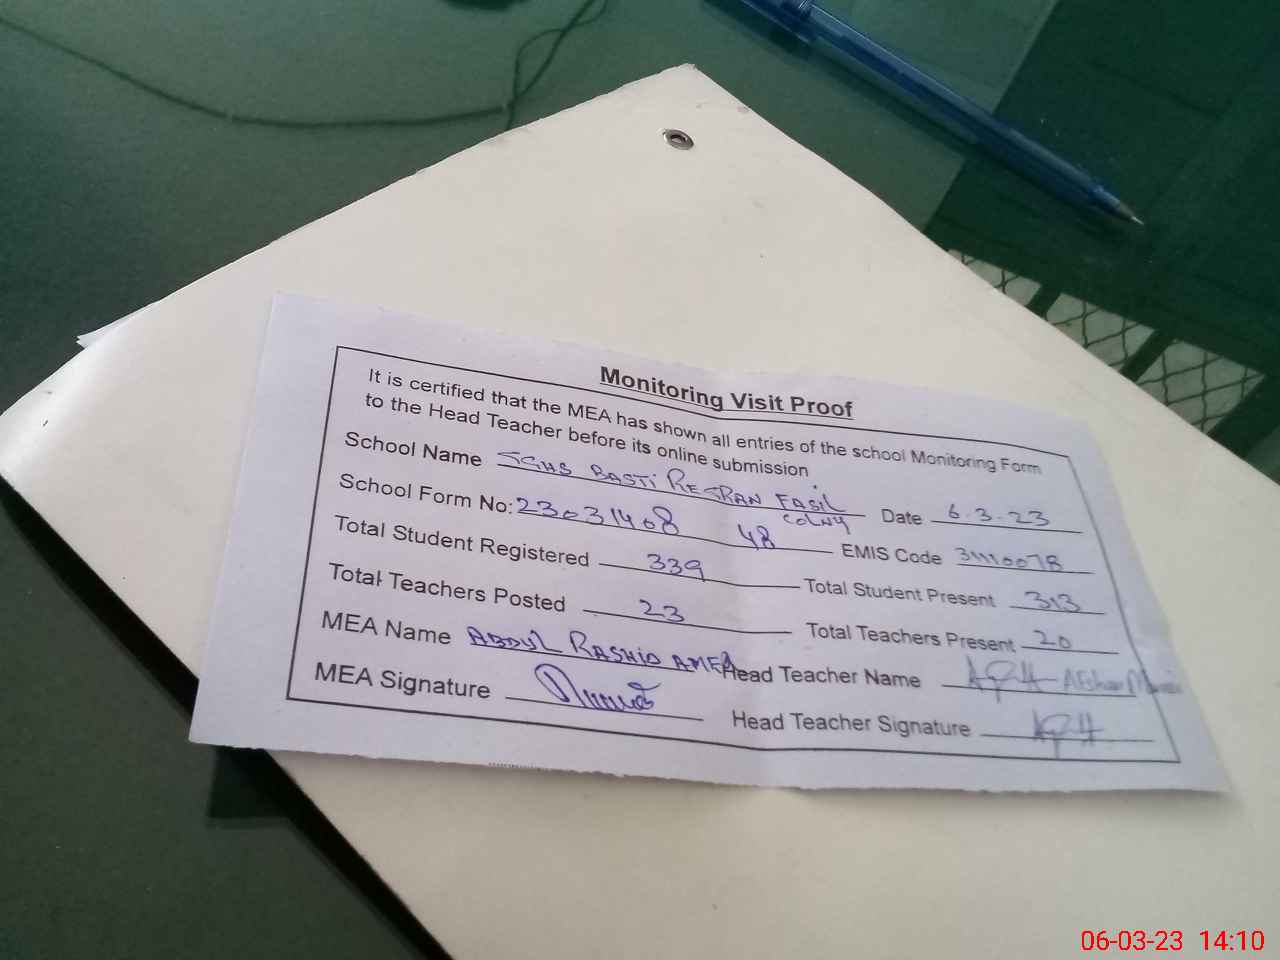 Monitoring Visit Proof
It is certified that the MEA has shown all entries of the school Monitoring Form
to the Head Teacher before its online submission
School Name GGHS BASTI RETRAN FASIL COLNY Date 6.3.23
School Form No: 23031408 48 EMIS Code 31110078
Total Student Registered 339 Total Student Present 313
Total Teachers Posted 23 Total Teachers Present 20
MEA Name ABDUL RASHID Head Teacher Name Afshan
MEA Signature Head Teacher Signature
06-03-23 14:10